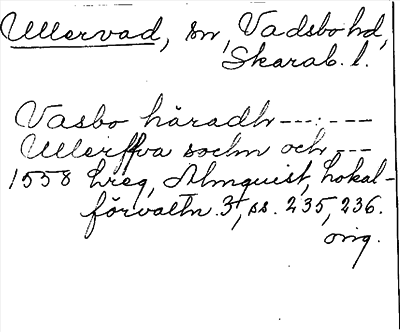 Ullervad, sn, Vadsbo hd,
Skarab. l.
Vasbo häradh ---:---
Ullerffva sochn och ---
1558 Lreg, Almquist, Lokal-
förvaltn. 3, ss. 235, 236.
orig.